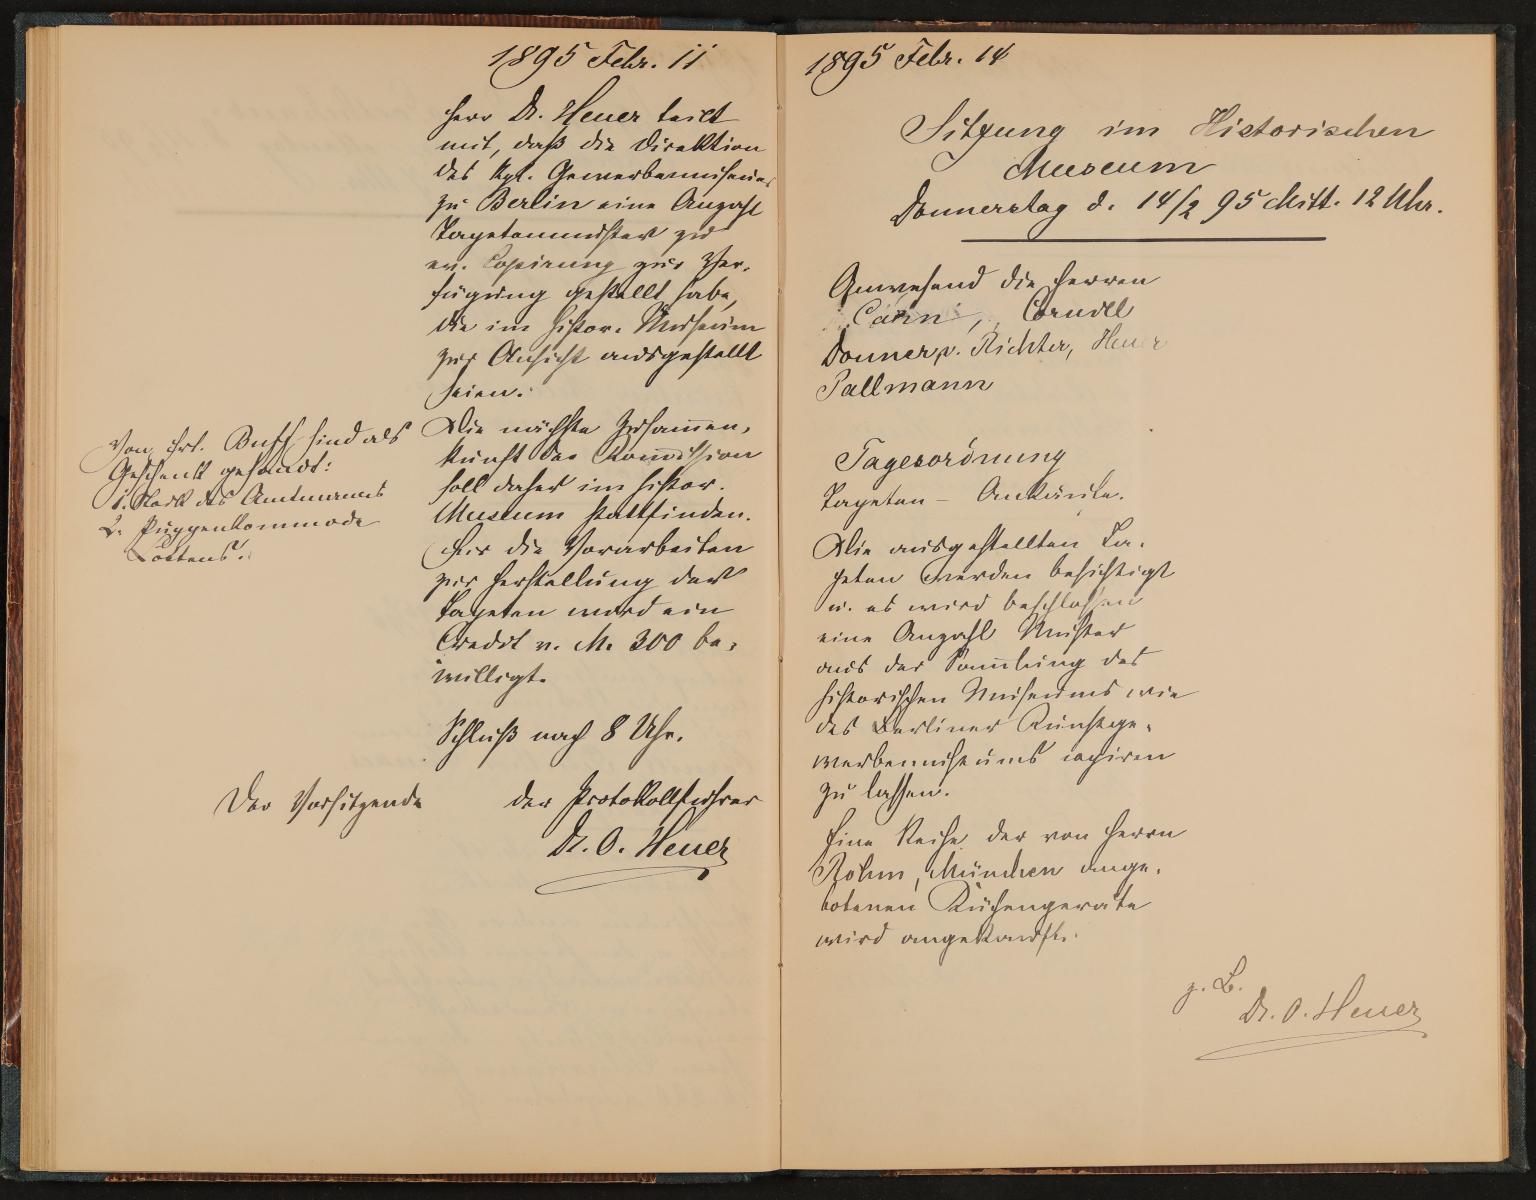 1895 Febr. 11
Herr Dr. Heuer teilt
mit, daß die Direktion
des Kgl. Gewerbemuseums
zu Berlin eine Anzahl
Tapetenmuster zu
ev. Copirung zur Ver-
fügung gestellt habe,
die im histor. Museum
zur Ansicht ausgestellt
seien.
Die nächste Zusam̅en-
kunft der Kom̅ission
soll daher im histor.
Museum stattfinden.
Für die Vorarbeiten
zur Herstellung der
Tapeten wird ein
Credit v. M. 300 be-
willigt.
Schluß nach 8 Uhr.
Der Vorsitzende
der Protokollführer
Dr. O. Heuer
Von Frl. Buff sind als
Geschenk gesandt:
1. Rock des Amtmanns
2. Puppenkommode
Lottens.
1895 Febr. 14
Sitzung im Historischen
Museum
Donnerstag d. 14/2 95 Mitt. 12 Uhr.
Anwesend die Herren
Cahn, Cornill
Donner v. Richter, Heuer
Pallmann
Tagesordnung
Tapeten - Ankäufe.
Die ausgestellten Ta-
peten werden besichtigt
u. es wird beschlossen
eine Anzahl Muster
aus der Sam̅lung des
historischen Museums wie
des Berliner Kunstge-
werbemuseums copiren
zu lassen.
Eine Reihe der von Herrn
Röhm, München ange-
botenen Küchengeräte
wird angekauft.
z. B.
Dr. O. Heuer